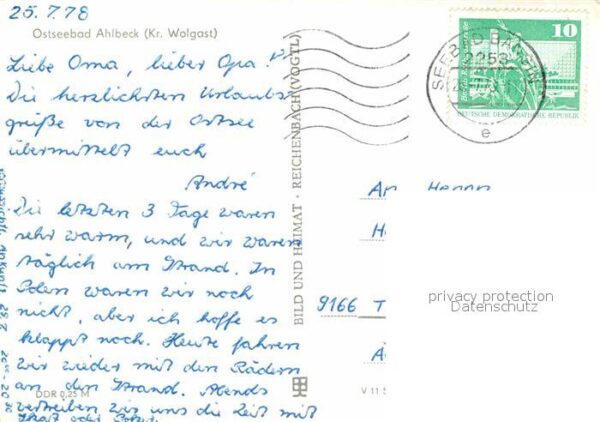 25.7.78
Ostseebad Ahlbeck (Kr. Wolgast)
Liebe Oma, lieber Opa!
Die herzlichsten Urlaubs
grüße von der Ostsee
übermittelt euch
André
Die letzten 3 Tage waren
sehr warm, und wir waren
täglich am Strand. In
Polen waren wir noch
nicht, aber ich hoffe es
klappt noch. Heute fahren
wir wieder mit den Rädern
an den Strand. Abends
vertreiben wir uns die Zeit mit
Skat oder
DDR 0,25 M
BILD UND HEIMAT · REICHENBACH (VOGTL)
SEEBAD BANSIN
2253
e
10
DEUTSCHE DEMOKRATISCHE REPUBLIK
9166 T
privacy protection
Datenschutz
V 11